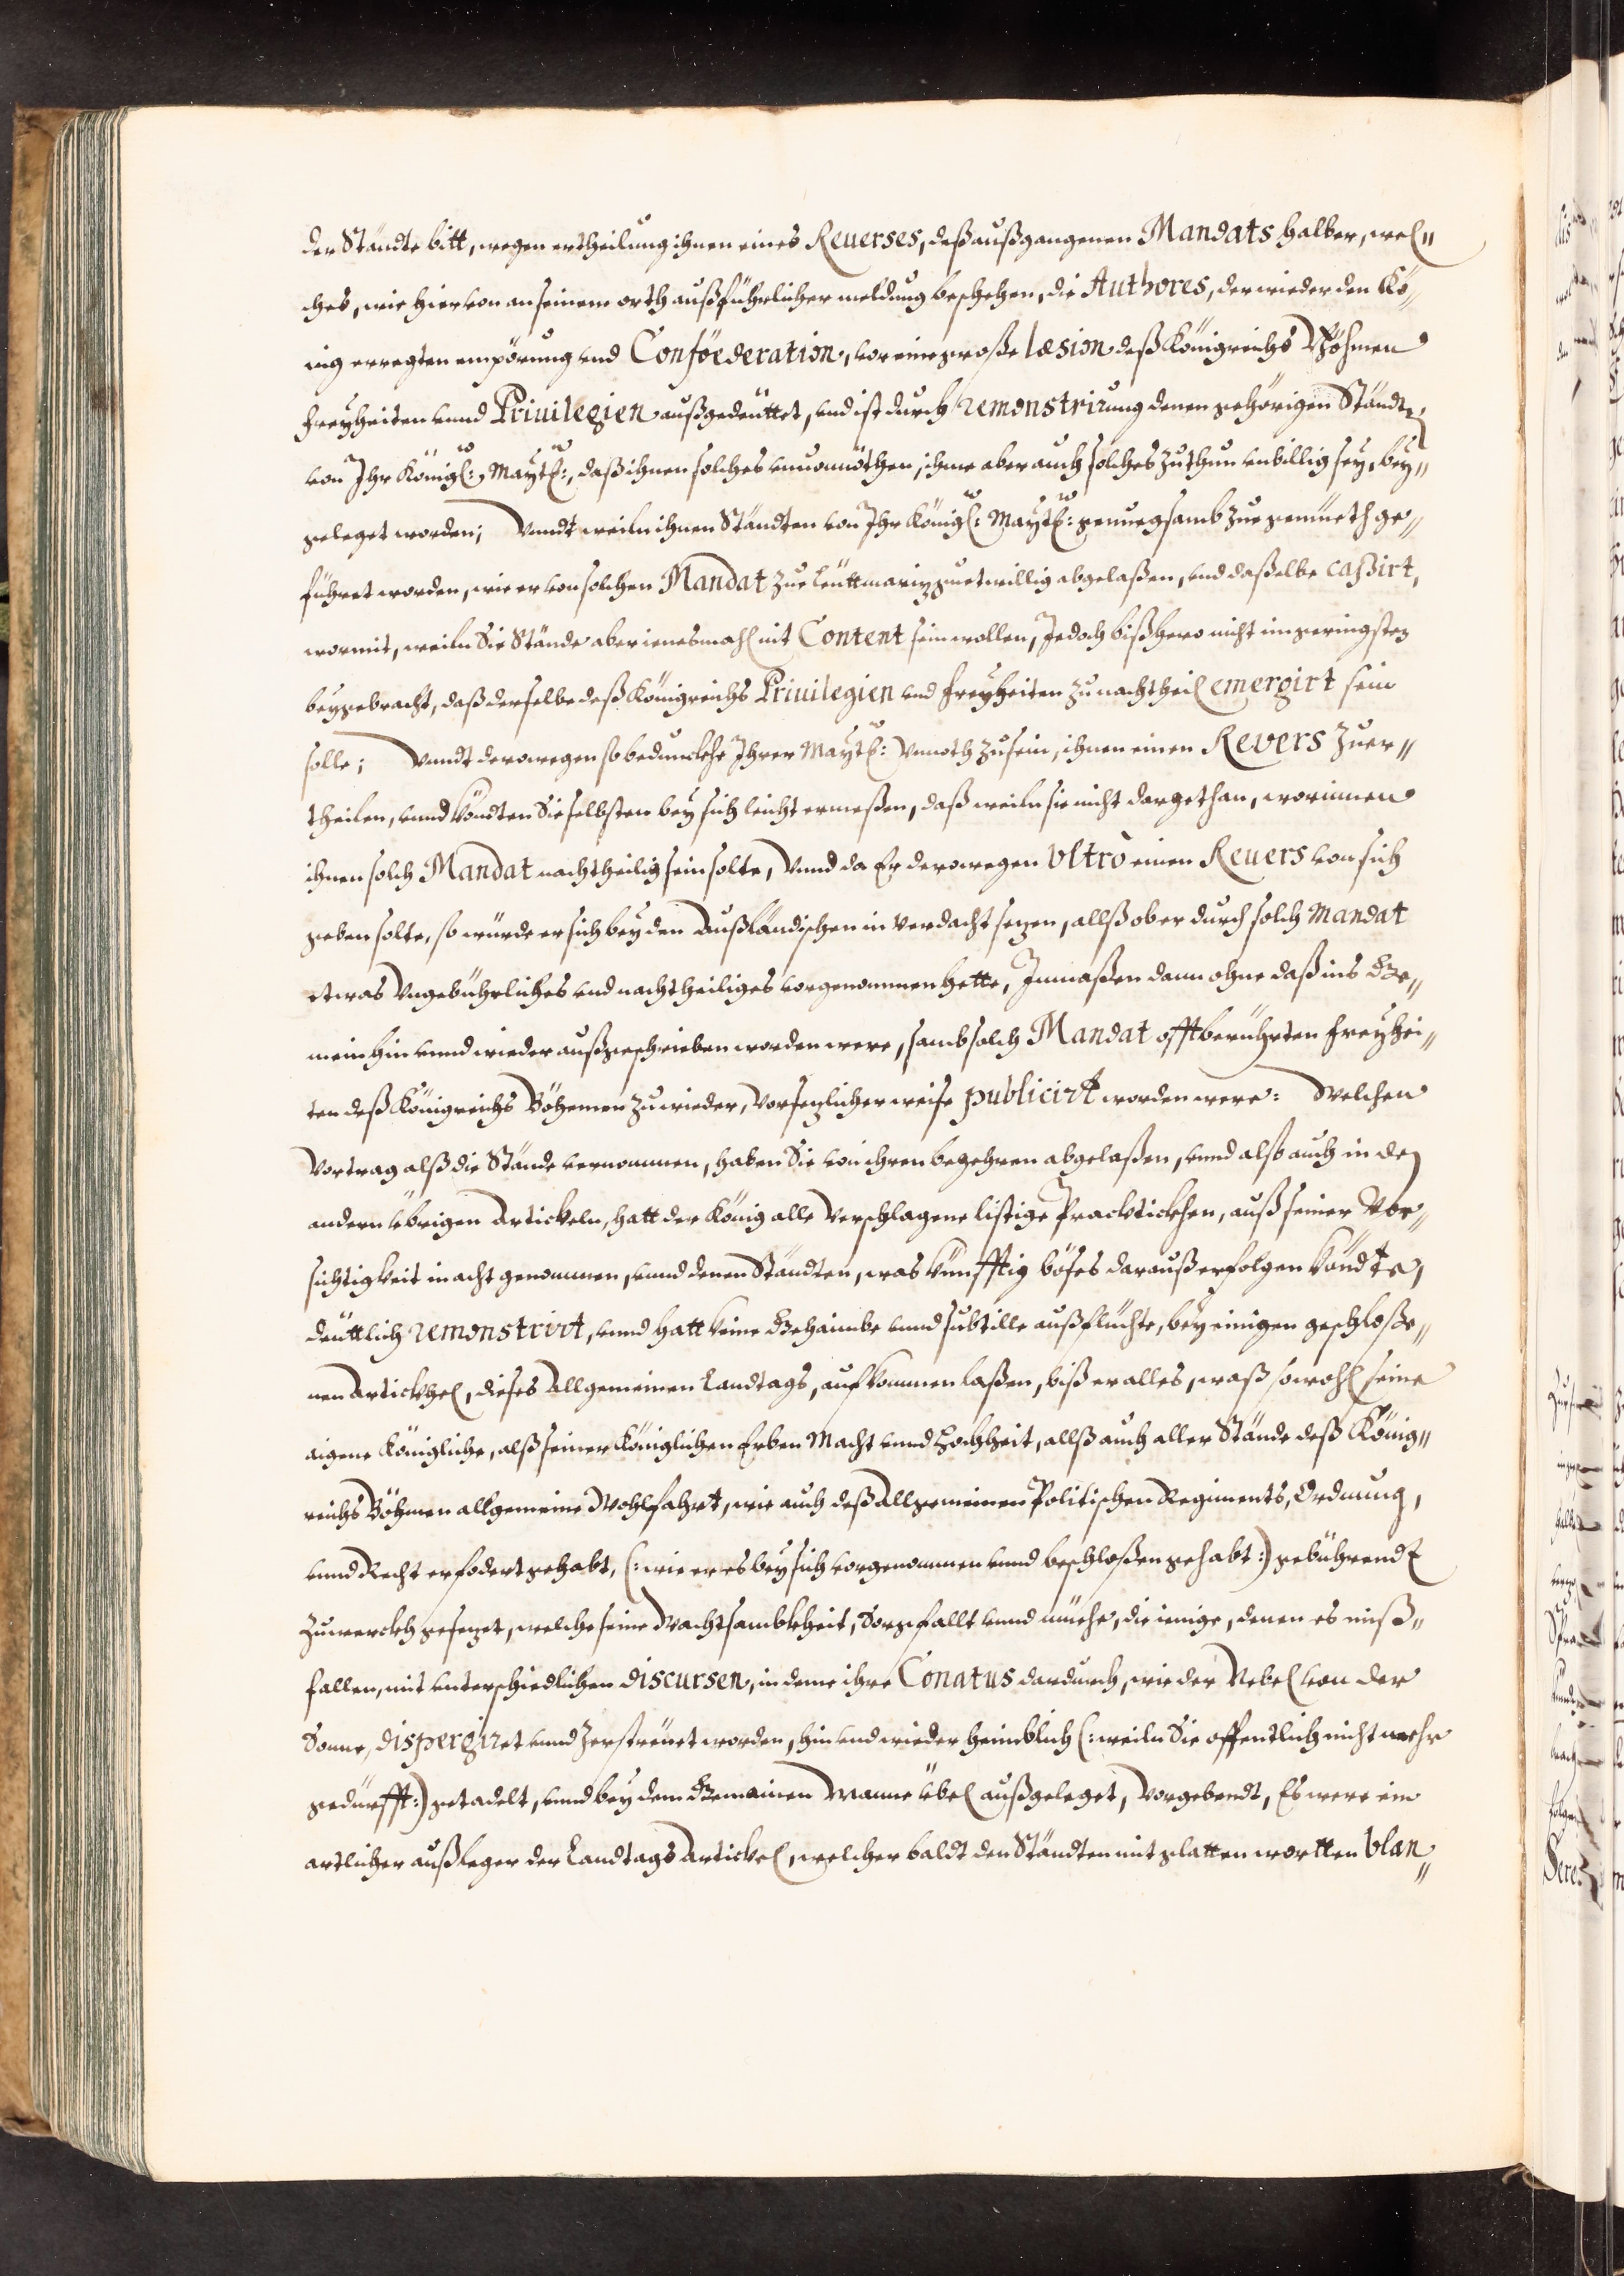 der Ständte bitt, wegen ertheilung ihnen eines Reuerses, deß außgangenen Mandats halber, wel„
ches, wie hieruon an seinem orth außführlicher meldung beschehen, die Authores, der wieder den Kö„
nig erregten empörung und Conföederation, vor eine große læsion deß Königreichs Böhmen
freyheiten unnd Priuilegien außgedeüttet, und ist durch remonstrirung denen gehörigen Ständten
von Ihr Königl: Maytt:, daß ihnen solches unuonnöthen, ihme aber auch solches zuthun unbillig sey, bey„
geleget worden; Unndt weiln ihnen Ständten von Ihr Königl: Maytt: genuegsamb zue gemüeth ge„
führet worden, wie er von solchen Mandat zue Leüttmariz guetwillig abgelaßen, und daßelbe caßirt,
wormit, weiln Sie Stände aber ienesmahl nit Content sein wollen, Jedoch bißhero nicht im geringsten
beygebracht, daß derselbe deß Königreichs Priuilegien und freyheiten zu nachtheil emergirt sein
solle; Unndt derowegen so bedunckhe Ihrer Maytt: Unnoth zu sein, ihnen einen Revers zuer„
theilen, unnd köndten Sie selbsten bey sich leicht ermeßen, daß weiln sie nicht dargethan, worinnen
ihnen solch Mandat nachtheilig sein solte, Unnd da Er derowegen Vltrò einen Reuers von sich
geben solte, so würde er sich bey den Außländischen in verdacht sezen, allß ob er durch solch Mandat
etwas Ungebührliches und nachtheiliges vorgenommen hette, Inmaßen dann ohne daß ins Ge„
mein hin unnd wieder außgeschrieben worden were, samb solch Mandat offtberührten freyhei„
ten deß Königreichs Böhemen zuwieder, Vorsezlicher weise publicirt worden were: Welchen
Vortrag alß die Stände vernommen, haben Sie von ihren begehren abgelaßen, unnd also auch in den
andern übrigen Artickeln, hatt der König alle Verschlagene listige Practickhen, auß seiner Vor„
sichtigkeit in acht genommen, unnd denen Ständten, was künfftig böses darauß erfolgen köndte,
deüttlich remonstrirt, unnd hatt keine Gehaimbe unnd subtille außflüchte, bey einigen geschloße„
nen Artickhel, dieses Allgemeinen Landtags, aufkommen laßen, biß er alles, waß sowohl seine
aigene Königliche, alß seiner Königlichen Erben Macht unnd Hochheit, allß auch aller Stände deß König„
reichs Böhmen allgemeine Wohlfahrt, wie auch deß Allgemeinen Politischen Regiments, Ordnung,
unnd Recht erfodert gehabt, (: wie er es bey sich vorgenommen unnd beschloßen gehabt :) gebührendt
zu werckh gesezet, welche seine Wachtsambkheit, Sorgfallt unnd müehe, die ienige, denen es miß„
fallen, mit unterschiedlichen discursen, in deme ihre Conatus dardurch, wie der Nebel von der
Sonne, dispergiret unnd zerstreüet worden, hin und wieder heimblich (: weiln Sie offentlich nicht mehr
gedürfft :) getadelt, unnd bey dem Gemainen Manne übel außgeleget, Vorgebendt, Es were ein
artlicher außleger der Landtags Artickel, welcher baldt den Ständten mit glatten wortten blan„